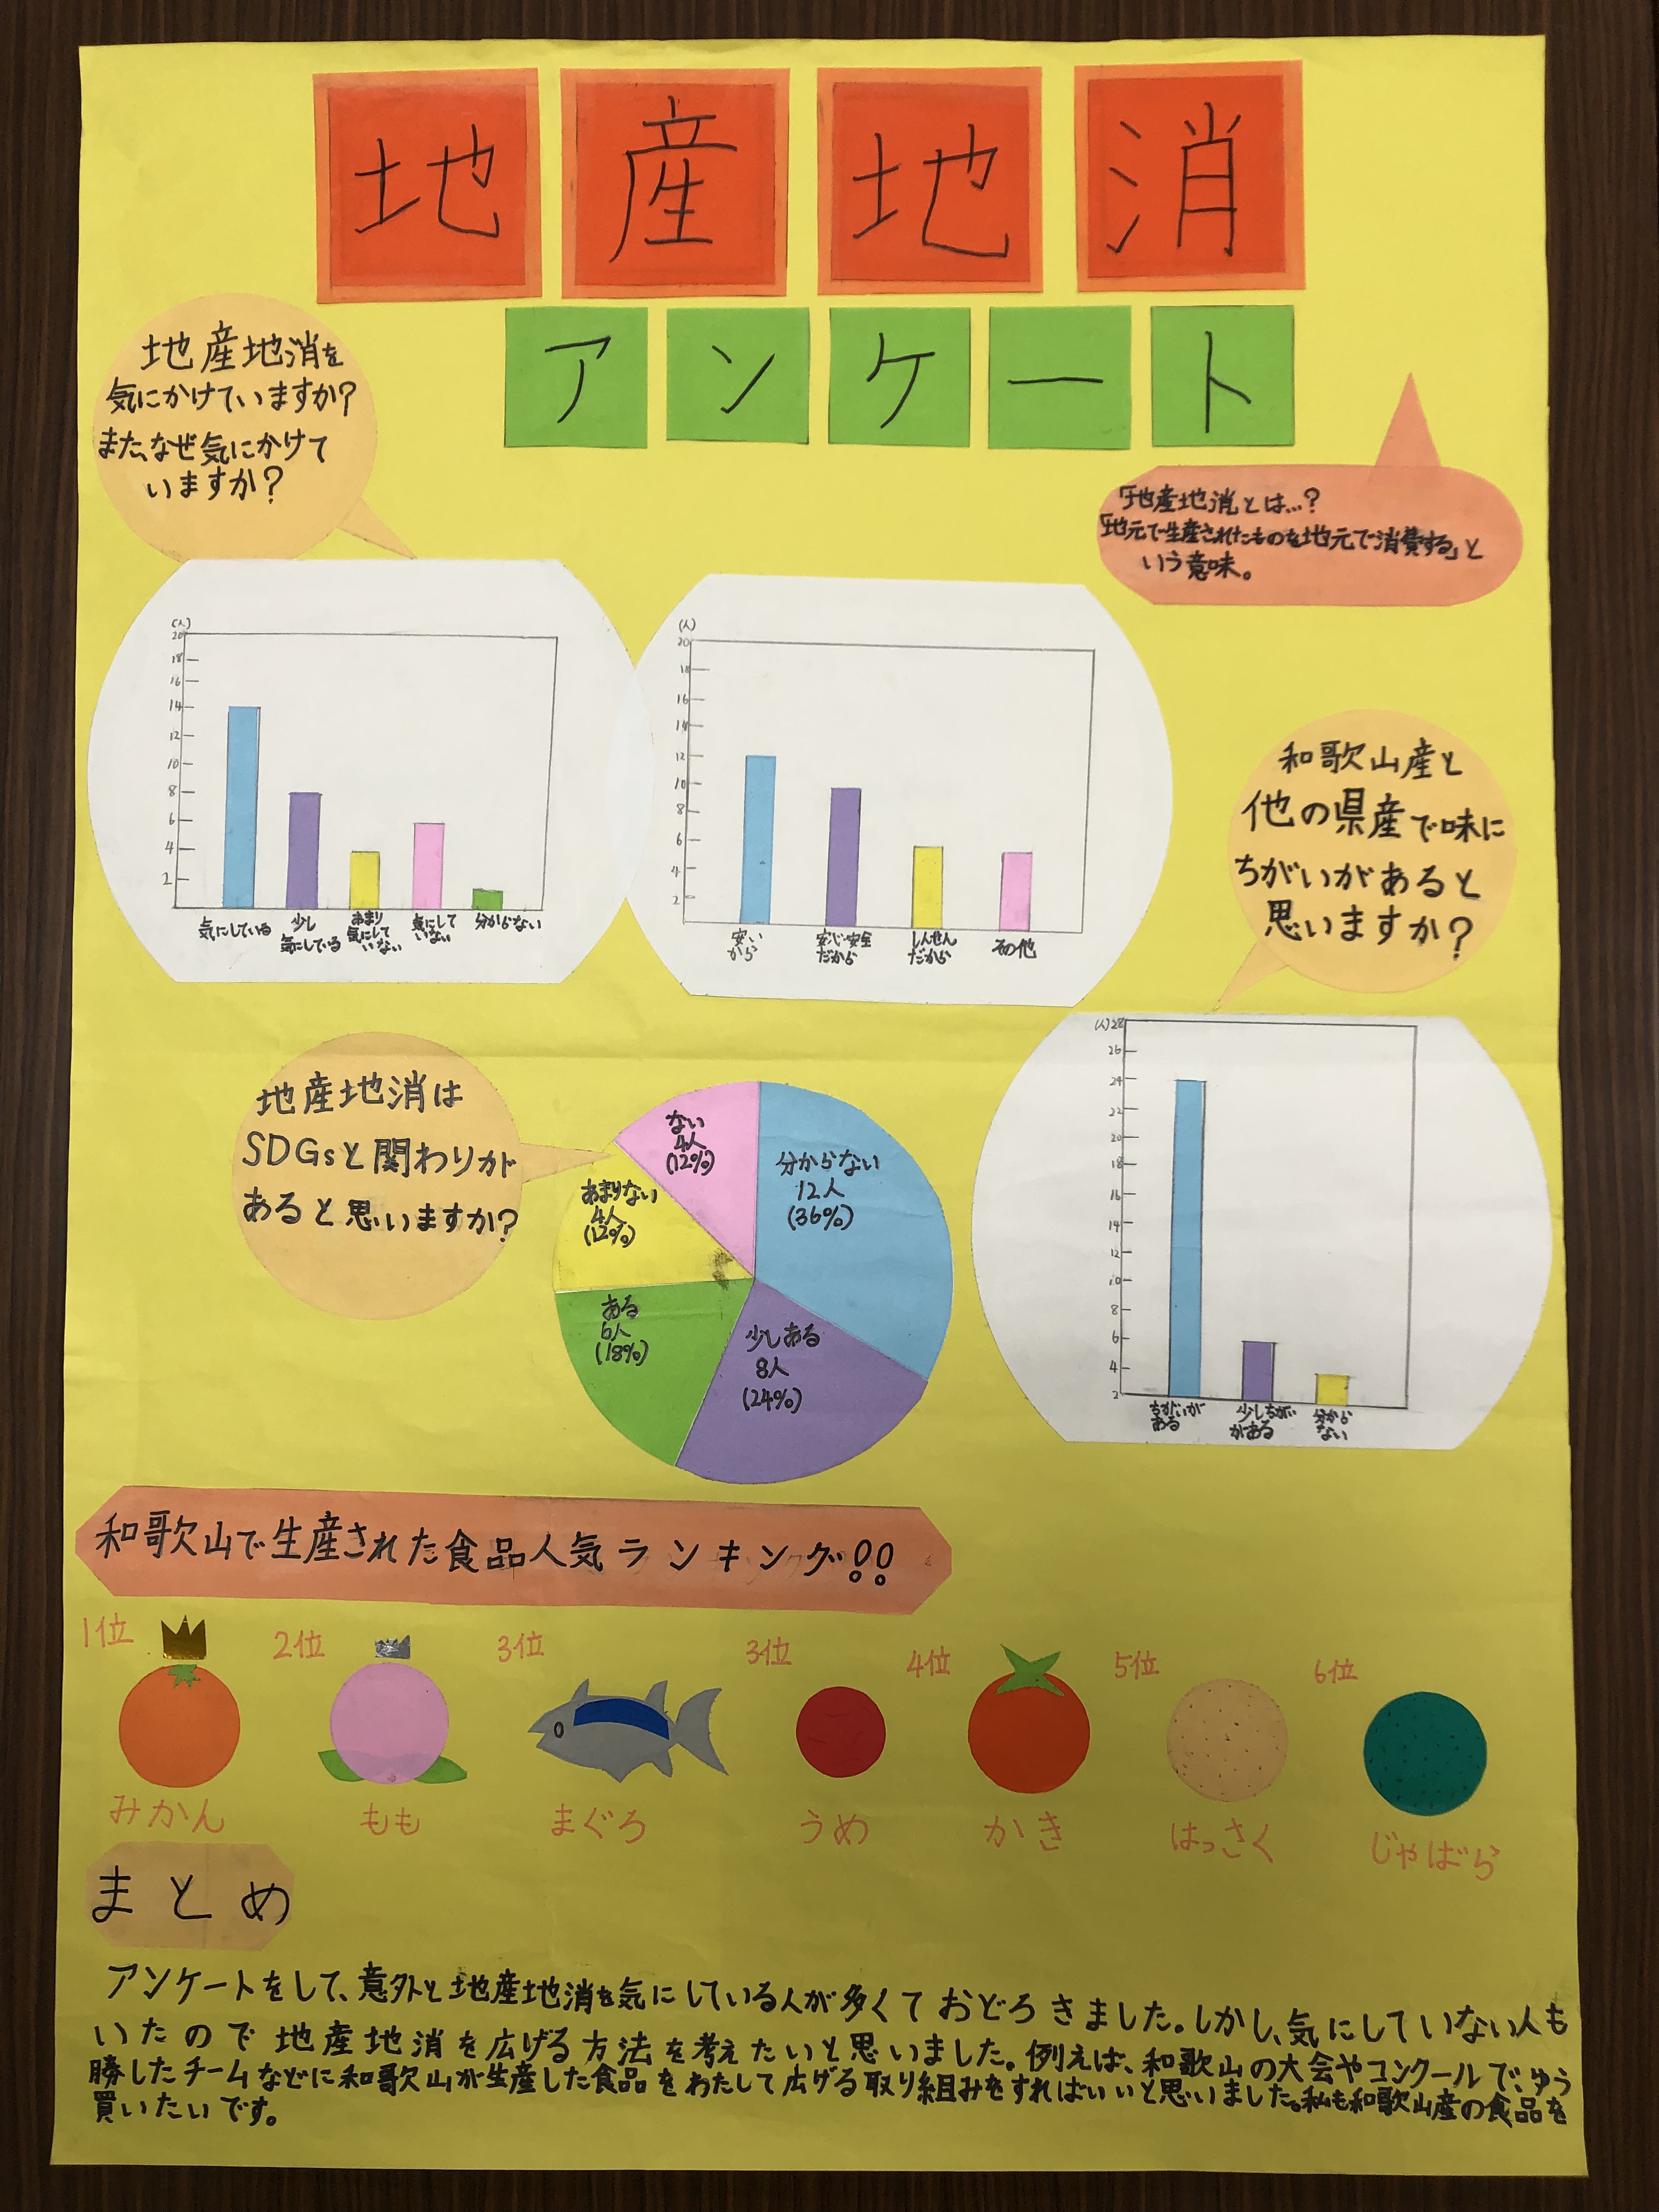 地産地消
アンケート
地産地消を
気にかけていますか?
また、なぜ気にかけて
いますか?
「地産地消とは…?
「地元で生産されたものを地元で消費する」と
いう意味。
(人)
20
18
16
14
12
10
8
6
4
2
気にしている
少し
気にしている
あまり
気にして
いない
気にして
いない
分からない
(人)
20
18
16
14
12
10
8
6
4
2
安い
から
安心・安全
だから
しんせん
だから
その他
和歌山産と
他の県産で味に
ちがいがあると
思いますか?
(人)28
26
24
22
20
18
16
14
12
10
8
6
4
2
ちがいが
ある
少しちがい
がある
分から
ない
地産地消は
SDGsと関わりが
あると思いますか?
ない
4人
(12%)
分からない
12人
(36%)
あまりない
4人
(12%)
ある
6人
(18%)
少しある
8人
(24%)
和歌山で生産された食品人気ランキング!!
1位
2位
3位
3位
4位
5位
6位
みかん
もも
まぐろ
うめ
かき
はっさく
じゃばら
まとめ
アンケートをして、意外と地産地消を気にしている人が多くておどろきました。しかし、気にしていない人も
いたので地産地消を広げる方法を考えたいと思いました。例えば、和歌山の大会やコンクールで、ゆう
勝したチームなどに和歌山が生産した食品をわたして広げる取り組みをすればいいと思いました。私も和歌山産の食品を
買いたいです。